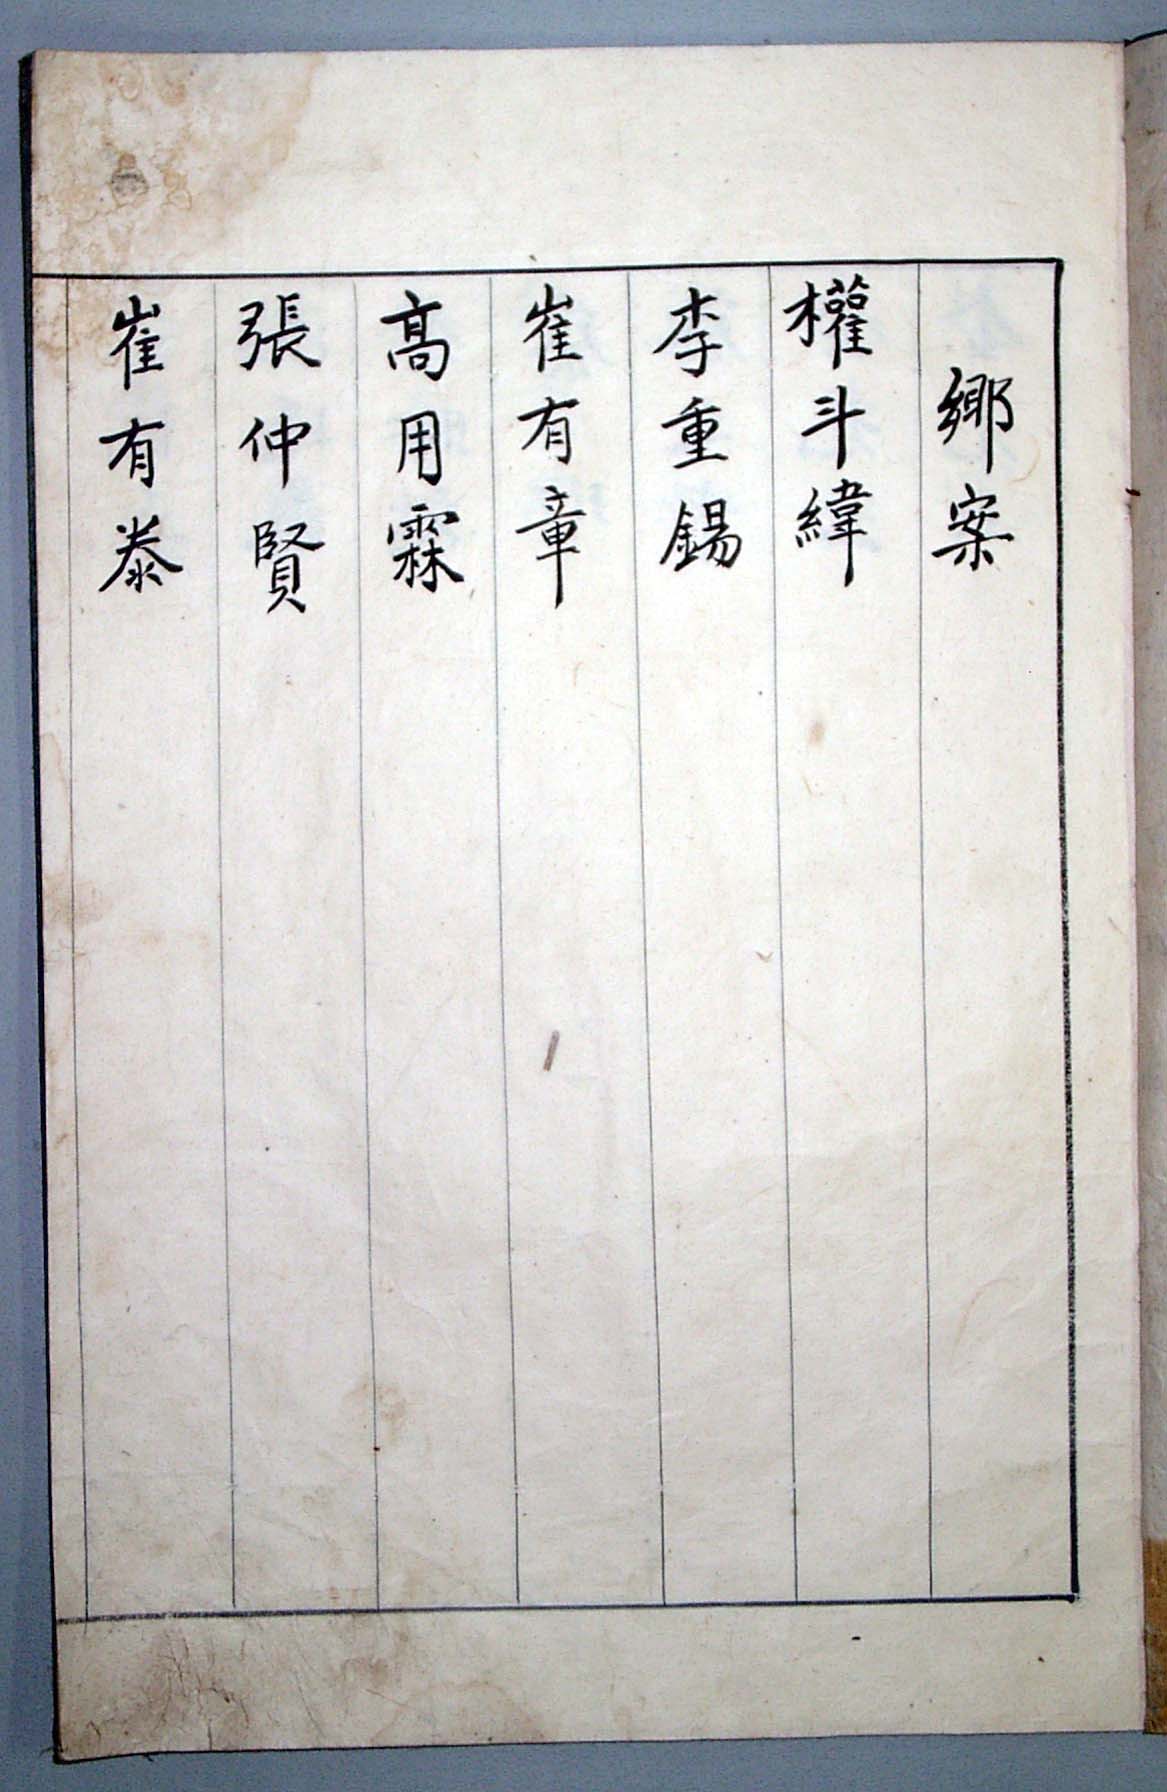 鄉案
權斗緯
李重錫
崔有章
高用霖
張仲賢
崔有泰